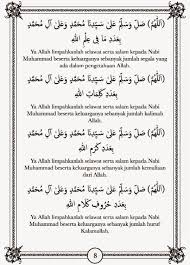 (اَللّٰهُمَّ) صَلِّ وَسَلِّمْ عَلَى سَيِّدِنَا مُحَمَّدٍ وَعَلَى آلِ مُحَمَّدٍ
بِعَدَدِ مَا فِي عِلْمِ اللهِ
Ya Allah limpahkanlah selawat serta salam kepada Nabi
Muhammad beserta keluarganya sebanyak jumlah segala yang
ada dalam pengetahuan Allah.
(اَللّٰهُمَّ) صَلِّ وَسَلِّمْ عَلَى سَيِّدِنَا مُحَمَّدٍ وَعَلَى آلِ مُحَمَّدٍ
بِعَدَدِ كَلِمَاتِ اللهِ
Ya Allah limpahkanlah selawat serta salam kepada Nabi
Muhammad beserta keluarganya sebanyak jumlah kalimah
Allah.
(اَللّٰهُمَّ) صَلِّ وَسَلِّمْ عَلَى سَيِّدِنَا مُحَمَّدٍ وَعَلَى آلِ مُحَمَّدٍ
بِعَدَدِ كَرَمِ اللهِ
Ya Allah limpahkanlah selawat serta salam kepada Nabi
Muhammad beserta keluarganya sebanyak jumlah kemuliaan
dari Allah.
(اَللّٰهُمَّ) صَلِّ وَسَلِّمْ عَلَى سَيِّدِنَا مُحَمَّدٍ وَعَلَى آلِ مُحَمَّدٍ
بِعَدَدِ حُرُوفِ كَلَامِ اللهِ
Ya Allah limpahkanlah selawat serta salam kepada Nabi
Muhammad beserta keluarganya sebanyak jumlah huruf
Kalamullah.
8